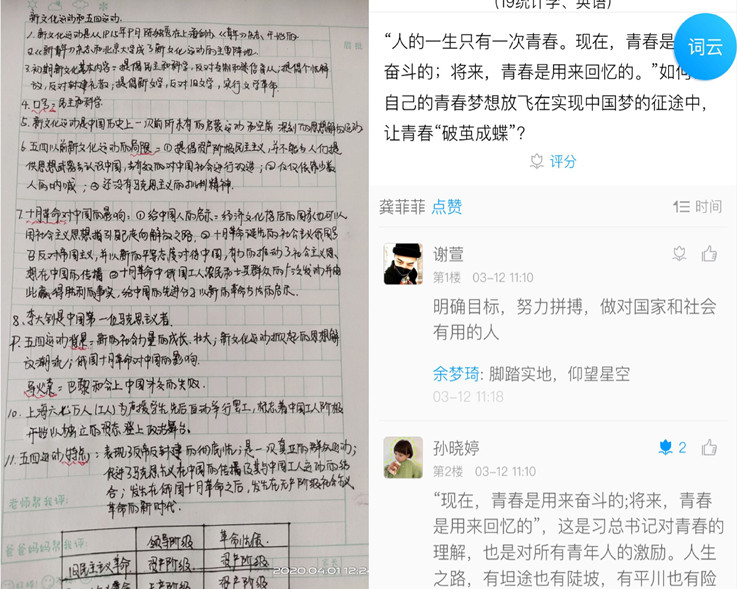 新文化运动和五四运动.
1.新文化运动是从1915年9月陈独秀在上海创办《青年》杂志开始的
2.《新青年》杂志和北京大学成了新文化运动的主要阵地.
3.初期新文化基本内容=提倡民主和科学,反对专制和迷信盲从;提倡个性解
放,反对封建礼教;提倡新文学,反对旧文学,实行文学革命.
4.口号=民主和科学
5.新文化运动是中国历史上一次前所未有的启蒙运动和空前深刻的思想解放运动
6.五四以前新文化运动的局限=①提倡资产阶级民主主义,并不能为人们提
供思想武器去认识中国,去有效的对中国社会进行改造;②仅仅依靠少数
人的呐喊;③还没有马克思主义的批判精神.
7.十月革命对中国的影响:①给中国人的启示=经济文化落后的国家也可以
用社会主义思想指引自己走向解放之路.②十月革命诞生的社会主义俄国号
召反对帝国主义,并以新的平等态度对待中国,有力的推动了社会主义思
想在中国的传播③十月革命中俄国工人农民和士兵群众的广泛发动并由
此赢得胜利的事实,给中国的先进分子以新的革命方法的启示.
8.李大钊是中国第一位马克思主义者.
9.五四运动背景=新的社会力量的成长、壮大;新文化运动掀起的思想解
放潮流;俄国十月革命对中国的影响.
导火索=巴黎和会上中国外交的失败.
10.上海六七万人(工人)为声援学生先后自动举行罢工,标志着中国工人阶级
开始以独立的姿态登上政治舞台.
11.五四运动特点:表现了反帝反封建的彻底性;是一次真正的群众运动;
促进了马克思主义在中国的传播及其与中国工人运动的结
合;发生在俄国十月革命之后,发生在无产阶级社会主义
革命的新时代.
老师帮我评:
爸爸妈妈帮我评:
领导阶级 革命性质.
旧民主主义革命 资产阶级 资产阶级
2020.04.01 12:24
(19统计学、英语)
词云
“人的一生只有一次青春。现在，青春是
奋斗的；将来，青春是用来回忆的。”如何
自己的青春梦想放飞在实现中国梦的征途中，
让青春“破茧成蝶”？
评分
龚菲菲 点赞 时间
谢萱
第1楼 03-12 11:10
明确目标，努力拼搏，做对国家和社会
有用的人
余梦琦: 脚踏实地，仰望星空
03-12 11:18
孙晓婷 2
第2楼 03-12 11:10
“现在，青春是用来奋斗的;将来，青春
是用来回忆的”，这是习总书记对青春的
理解，也是对所有青年人的激励。人生
之路，有坦途也有陡坡，有平川也有险